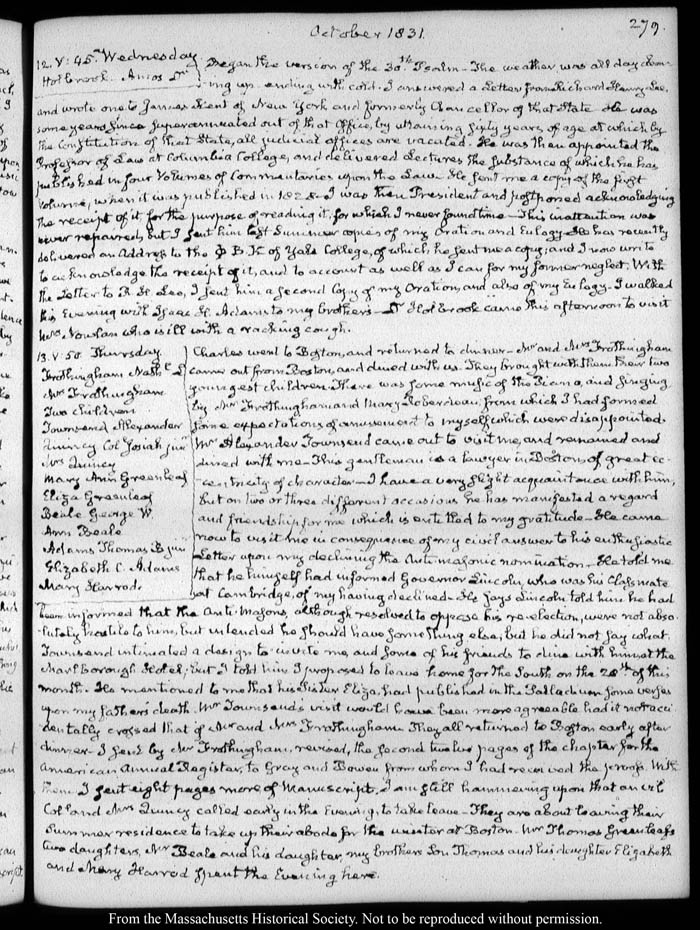 October 1831.
279.
12. V: 45. Wednesday
Holbrook. Amos Dr
Began the version of the 30th Psalm. The weather was all day
ing up, ending with cold. I answered a Letter from Richard Henry Lee,
and wrote one to James Kent of New York and formerly Chancellor of that State. He was
some years since superannuated out of that Office, by attaining sixty years of age at which by
the Constitution of that State, all judicial offices are vacated. He was then appointed the
Professor of Law at Columbia College, and delivered Lectures the substance of which he has
published in four Volumes of Commentaries upon the Law. He sent me a copy of the first
Volume, when it was published in 1826. I was then President and postponed acknowledging
the receipt of it, for the purpose of reading it, for which I never found time—This inattention was
never repaired, but I sent him last Summer copies of my Oration and Eulogy. He has recently
delivered an Address to the Φ B.K of Yale College, of which, he sent me a copy; and I now write
to acknowledge the receipt of it, and to account as well as I can for my former neglect. With
the Letter to R. H. Lee, I sent him a second Copy of my Oration, and also of my Eulogy. I walked
this Evening with Isaac H. Adams to my brothers—Dr Holbrook came this afternoon to visit
Mrs Nowlan who is ill with a racking cough.
13. V. 50. Thursday.
Frothingham Nathl L
Mrs Frothingham
Two children
Townsend Alexander
Quincy Col Josiah junr
Mrs Quincy
Mary Ann Greenleaf
Eliza Greenleaf
Beale George W.
Ann Beale
Adams Thomas B jun
Elizabeth C. Adams
Mary Harrod.
Charles went to Boston, and returned to dinner—Mr and Mrs Frothingham
came out from Boston, and dined with us. They brought with them their two
youngest children. There was some music of the Piano, and singing
by Mr Frothingham and Mary Roberdeau, from which I had formed
some expectations of amusement to myself which were disappointed.
Mr Alexander Townsend came out to visit me, and remained and
dined with me—This gentleman is a lawyer in Boston, of great ec-
-centricity of character—I have a very slight acquaintance with him,
but on two or three different occasions he has manifested a regard
and friendship for me which is entitled to my gratitude. He came
now to visit me in consequence of my civil answer to his enthusiastic
Letter upon my declining the Anti-masonic nomination. He told me
that he himself had informed Governor Lincoln, who was his Classmate
at Cambridge, of my having declined—He says Lincoln told him he had
been informed that the Anti-Masons, although resolved to oppose his re-election, were not abso-
-lutely hostile to him, but intended he should have something else; but he did not say what.
Townsend intimated a design to invite me, and some of his friends to dine with him at the
Marlborough Hotel; but I told him I proposed to leave home for the South on the 20th of this
month. He mentioned to me that his Sister Eliza, had published in the Palladium some verses
upon my fathers death. Mr Townsend's visit would have been more agreeable had it not acci-
dentally crossed that of Mr and Mrs Frothingham. They all returned to Boston early after
dinner—I sent by Mr Frothingham, revised, the second twelve pages of the chapter for the
American Annual Register, to Gray and Bowen from whom I had received the proofs. With
them I sent eight pages more of Manuscript. I am still hammering upon that anvil
Coll and Mrs Quincy called early in the Evening, to take leave—They are about leaving their
Summer residence to take up their abode for the winter at Boston. Mr Thomas Greenleafs
two daughters, Mr Beale and his daughter, my brothers Son Thomas and his daughter Elizabeth
and Mary Harrod spent the Evening here.
From the Massachusetts Historical Society. Not to be reproduced without permission.